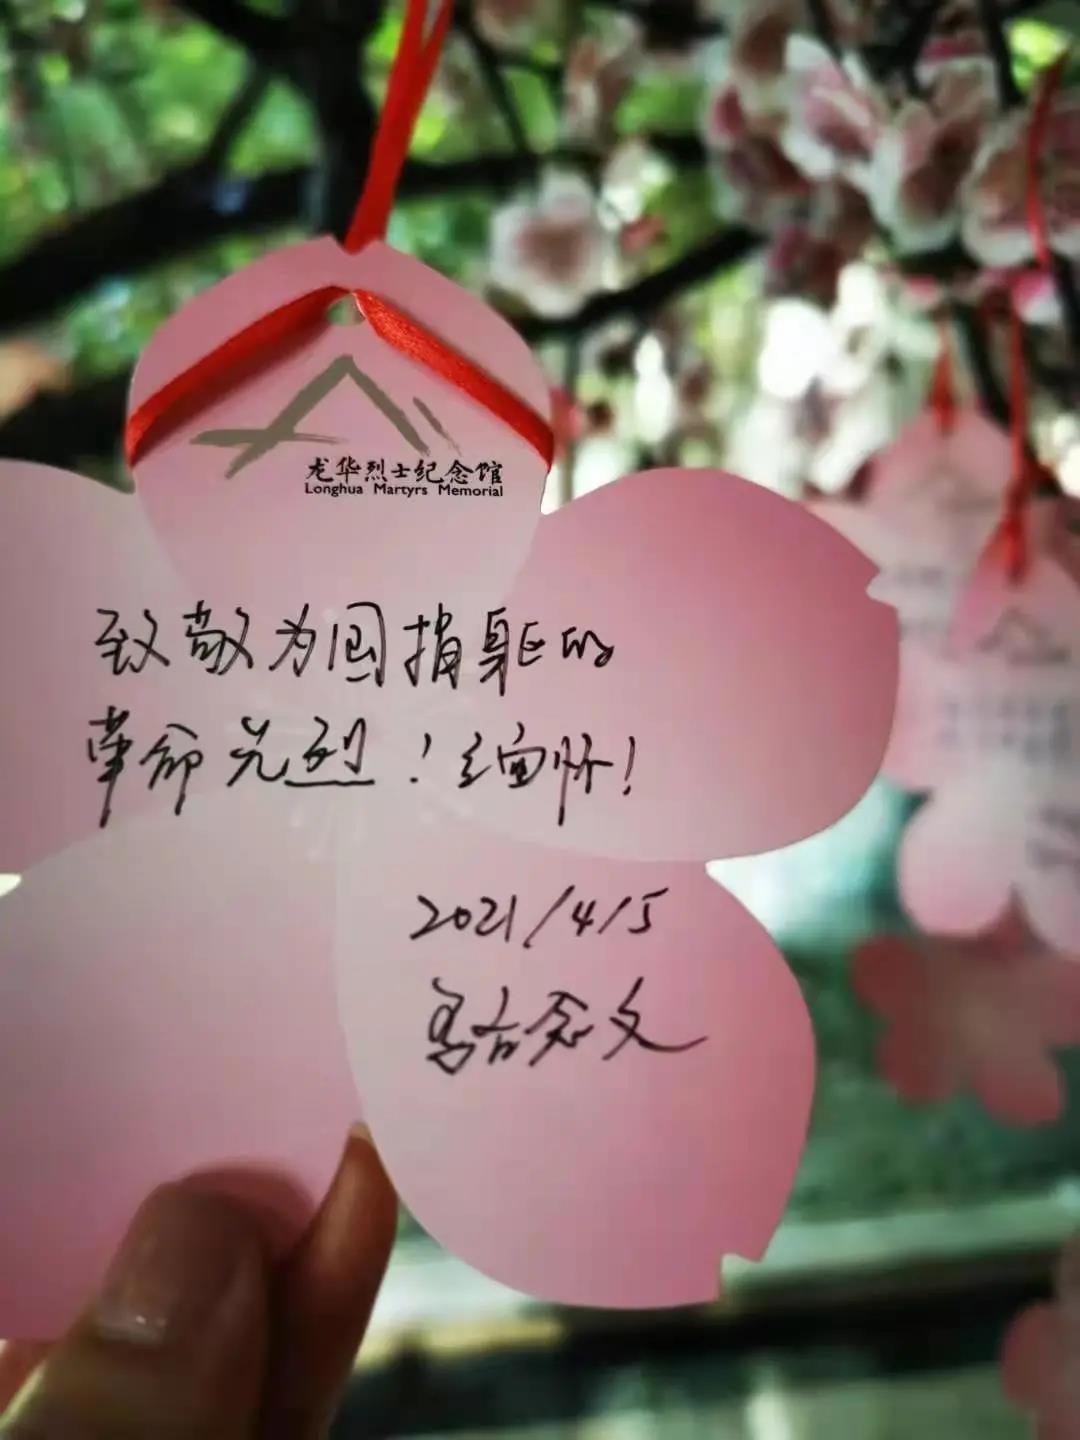 龙华烈士纪念馆
Longhua Martyrs Memorial
致敬为国捐躯的
革命先烈！缅怀！
2021/4/5
骆念文